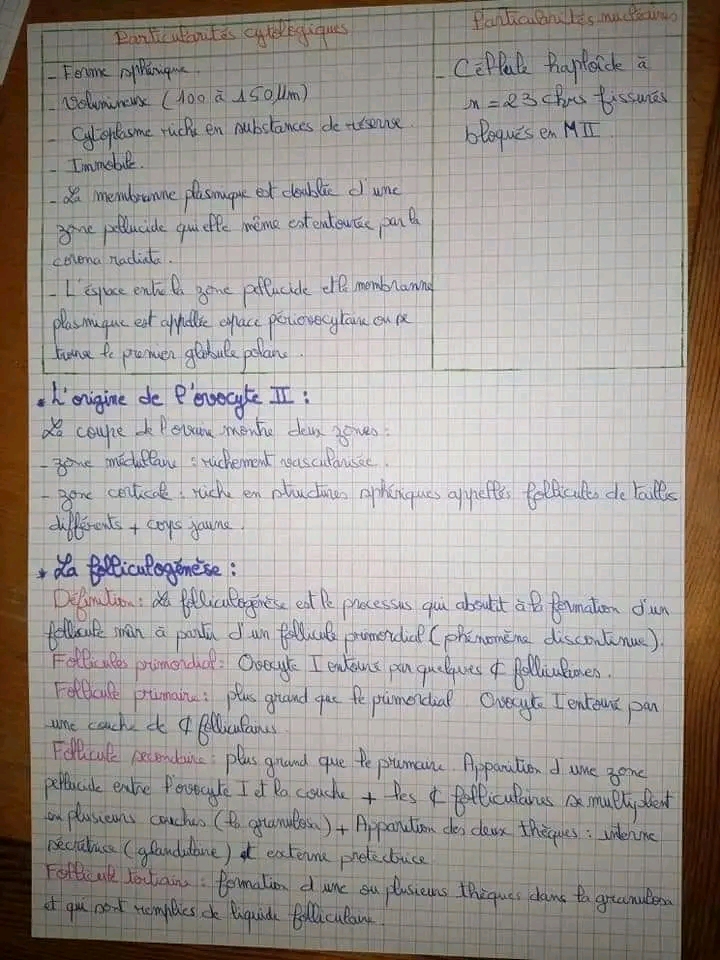 Particularités cytologiques
Particularités nucléaires
- Forme sphérique.
- Volumineux (100 à 150 µm)
- Cytoplasme riche en substances de réserve.
- Immobile.
- La membranne plasmique est doublée d'une
zone pellucide qui elle même est entourée par la
corona radiata.
- L'éspace entre la zone pellucide et la membranne
plasmique est appellée espace périovocytaire ou se
trouve le premier globule polaire.
- Cellule haploïde à
n = 23 chrs fissurés
bloqués en M II
• L'origine de l'ovocyte II :
La coupe de l'ovaire montre deux zones :
- zone médullaire : richement vascularisée.
- zone corticale : riche en structures sphériques appellés follicules de tailles
différents + corps jaune.
* La folliculogénèse :
Définition : La folliculogénèse est le processus qui aboutit à la formation d'un
follicule mûr à partir d'un follicule primordial (phénomène discontinue).
Follicules primordial : Ovocyte I entouré par quelques ¢ folliculaires.
Follicule primaire : plus grand que le primordial. Ovocyte I entouré par
une couche de ¢ folliculaires.
Follicule secondaire : plus grand que le primaire. Apparition d'une zone
pellucide entre l'ovocyte I et la couche + les ¢ folliculaires se multiplient
en plusieurs couches (la granulosa) + Apparition des deux thèques : interne
sécrétrice (glandulaire) et externe protectrice.
Follicule tertiaire : formation d'une ou plusieurs thèques dans la granulosa
et qui sont remplies de liquide folliculaire.